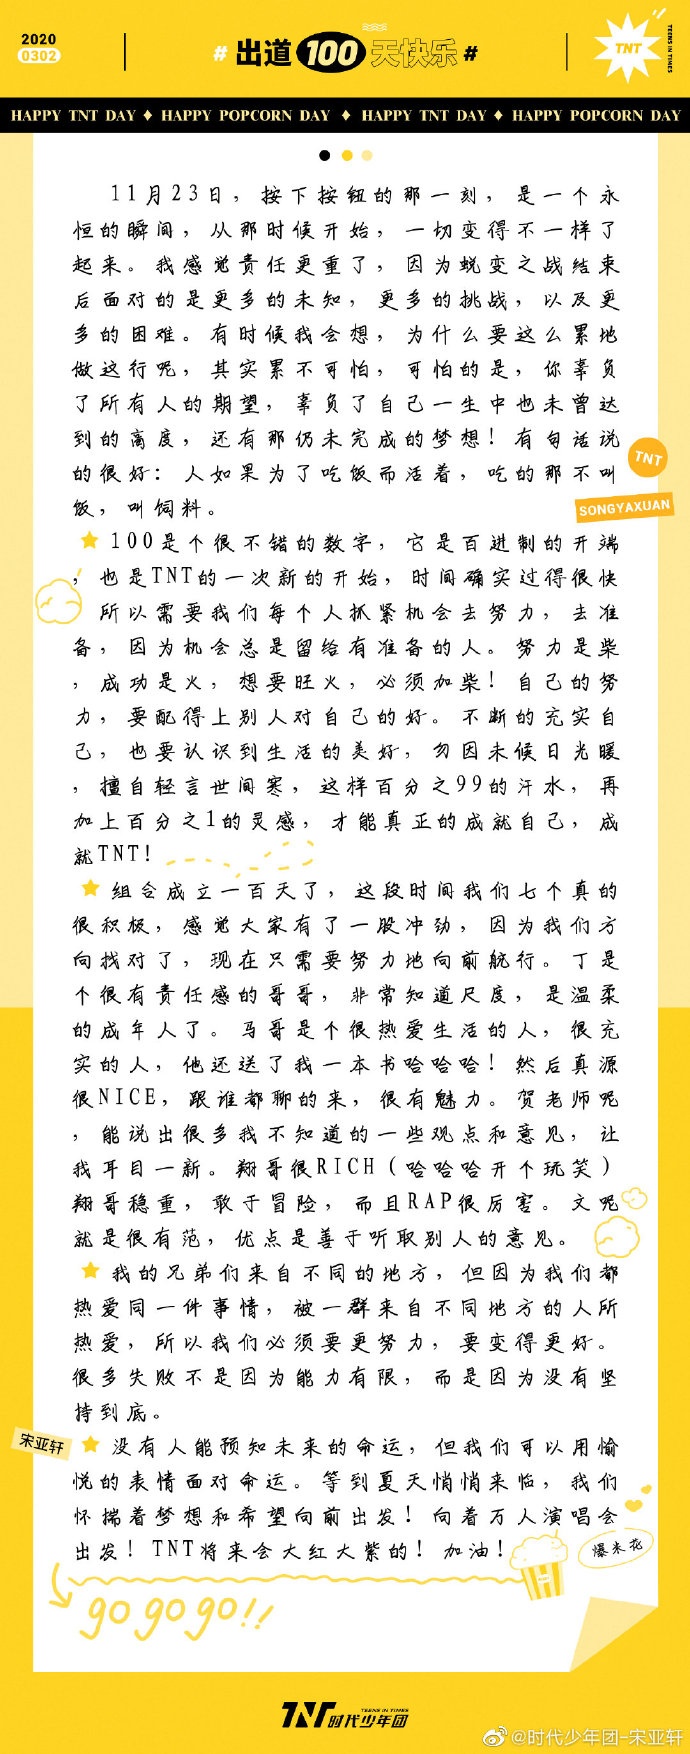 2020
0302
# 出道100天快乐 #
TNT
TEENS IN TIMES
HAPPY TNT DAY ♦ HAPPY POPCORN DAY ♦ HAPPY TNT DAY ♦ HAPPY POPCORN DAY
11月23日，按下按钮的那一刻，是一个永
恒的瞬间，从那时候开始，一切变得不一样了
起来。我感觉责任更重了，因为蜕变之战结束
后面对的是更多的未知，更多的挑战，以及更
多的困难。有时候我会想，为什么要这么累地
做这行呢，其实累不可怕，可怕的是，你辜负
了所有人的期望，辜负了自己一生中也未曾达
到的高度，还有那仍未完成的梦想！有句话说
的很好：人如果为了吃饭而活着，吃的那不叫
饭，叫饲料。
TNT
SONGYAXUAN
100是个很不错的数字，它是百进制的开端
，也是TNT的一次新的开始，时间确实过得很快
所以需要我们每个人抓紧机会去努力，去准
备，因为机会总是留给有准备的人。努力是柴
，成功是火，想要旺火，必须加柴！自己的努
力，要配得上别人对自己的好。不断的充实自
己，也要认识到生活的美好，勿因未候日光暖
，擅自轻言世间寒，这样百分之99的汗水，再
加上百分之1的灵感，才能真正的成就自己，成
就TNT！
组合成立一百天了，这段时间我们七个真的
很积极，感觉大家有了一股冲劲，因为我们方
向找对了，现在只需要努力地向前航行。丁是
个很有责任感的哥哥，非常知道尺度，是温柔
的成年人了。马哥是个很热爱生活的人，很充
实的人，他还送了我一本书哈哈哈！然后真源
很NICE，跟谁都聊的来，很有魅力。贺老师呢
，能说出很多我不知道的一些观点和意见，让
我耳目一新。翔哥很RICH（哈哈哈开个玩笑）
翔哥稳重，敢于冒险，而且RAP很厉害。文呢
就是很有范，优点是善于听取别人的意见。
我的兄弟们来自不同的地方，但因为我们都
热爱同一件事情，被一群来自不同地方的人所
热爱，所以我们必须要更努力，要变得更好。
很多失败不是因为能力有限，而是因为没有坚
持到底。
宋亚轩
没有人能预知未来的命运，但我们可以用愉
悦的表情面对命运。等到夏天悄悄来临，我们
怀揣着梦想和希望向前出发！向着万人演唱会
出发！TNT将来会大红大紫的！加油！
爆米花
go go go!!
TNT时代少年团
TEENS IN TIMES
@时代少年团-宋亚轩